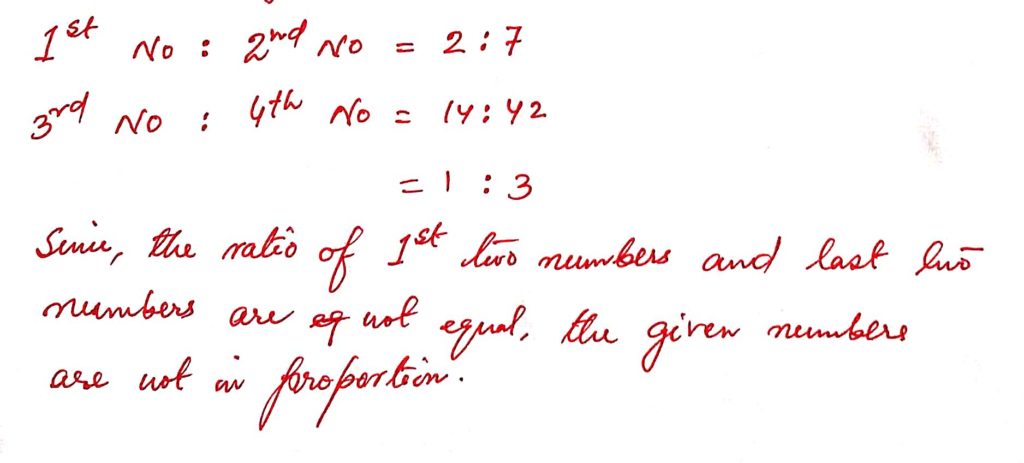 1st No : 2nd No = 2 : 7
3rd No : 4th No = 14 : 42
= 1 : 3
Since, the ratio of 1st two numbers and last two
numbers are eq not equal, the given numbers
are not in proportion.